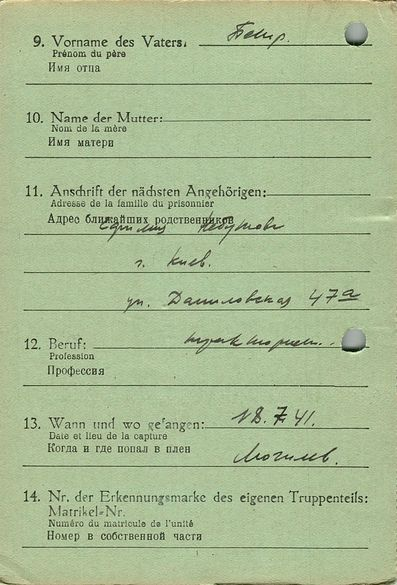 9. Vorname des Vaters: Петр.
Prénom du père
Имя отца
10. Name der Mutter:
Nom de la mère
Имя матери
11. Anschrift der nächsten Angehörigen:
Adresse de la famille du prisonnier
Адрес ближайших родственников
г. Киев.
ул. Даниловская 47а
12. Beruf: тракторист.
Profession
Профессия
13. Wann und wo gefangen: 18.7.41.
Date et lieu de la capture
Когда и где попал в плен
Могилев.
14. Nr. der Erkennungsmarke des eigenen Truppenteils:
Matrikel-Nr.
Numéro du matricule de l'unité
Номер в собственной части